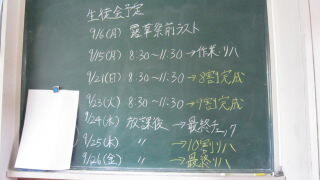 生徒会予定
9/6(月) 露草祭前ラスト
9/15(月) 8:30～11:30→作業・リハ
9/21(日) 8:30～11:30→8割完成
9/23(火) 8:30～11:30→9割完成
9/24(水) 放課後 →最終チェック
9/25(木) 〃 →10割リハ
9/26(金) 〃 →最終リハ